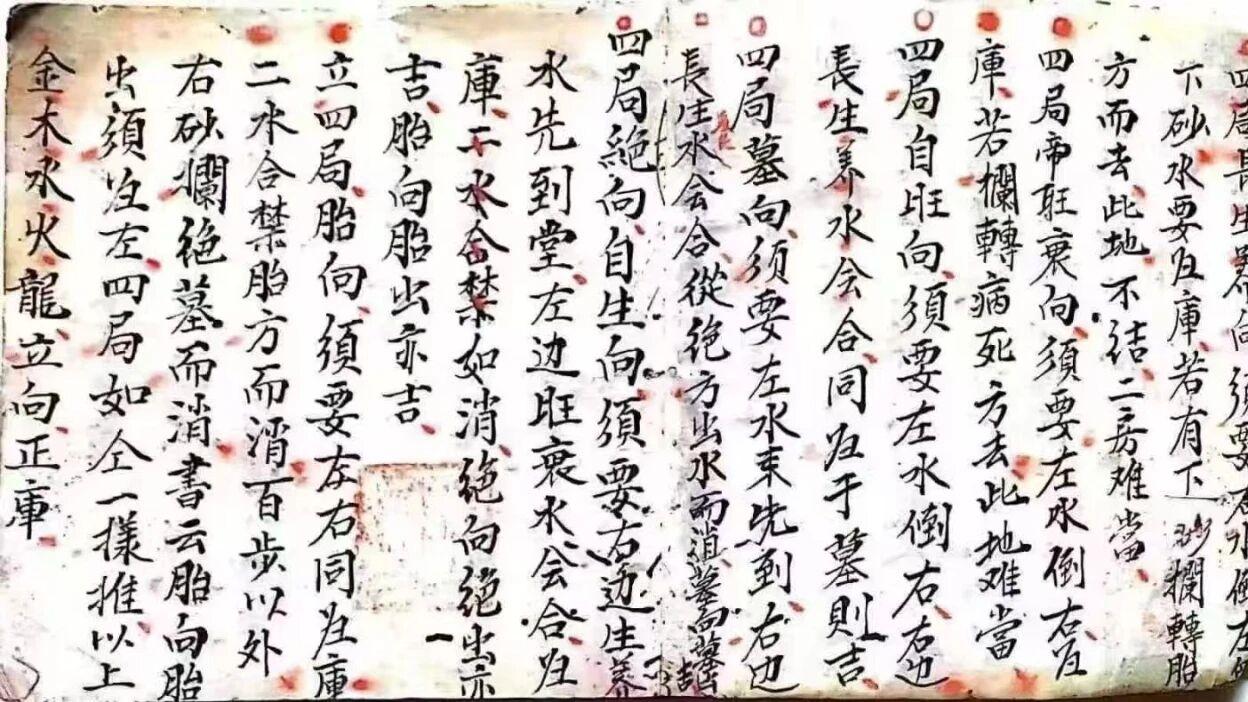 四局長生養向須要右水倒左
下砂水要歸庫若有下砂攔轉胎
方而去此地不结二房难當
四局帝旺衰向須要左水倒右归
庫若攔轉病死方去此地难當
四局自旺向須要左水倒右右边
長生养水会合同归于墓則吉
四局墓向須要左水来先到右边
長生水会合從绝方出水而消墓向墓
四局絕向自生向須要右边生养
水先到堂左边旺衰水会合归
庫二水合禁如消绝向绝出亦
吉胎向胎出亦吉
立四局胎向須要左右同归庫
二水合禁胎方而消百步以外
右砂攔绝墓而消書云胎向胎
出須归左四局如仝一樣推以上
金木水火龍立向正庫